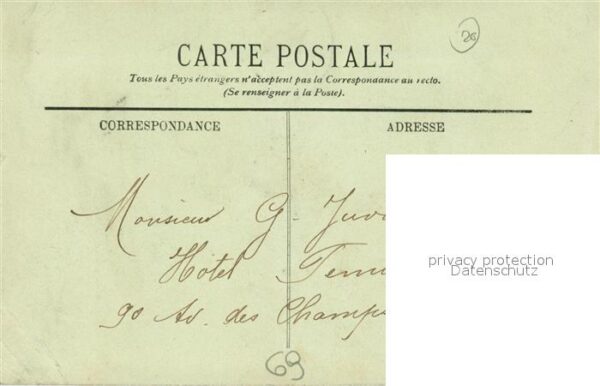 26
CARTE POSTALE
Tous les Pays étrangers n'acceptent pas la Correspondance au recto.
(Se renseigner à la Poste).
CORRESPONDANCE
ADRESSE
Monsieur G
Hôtel
90 Av. des Champs
69
privacy protection
Datenschutz